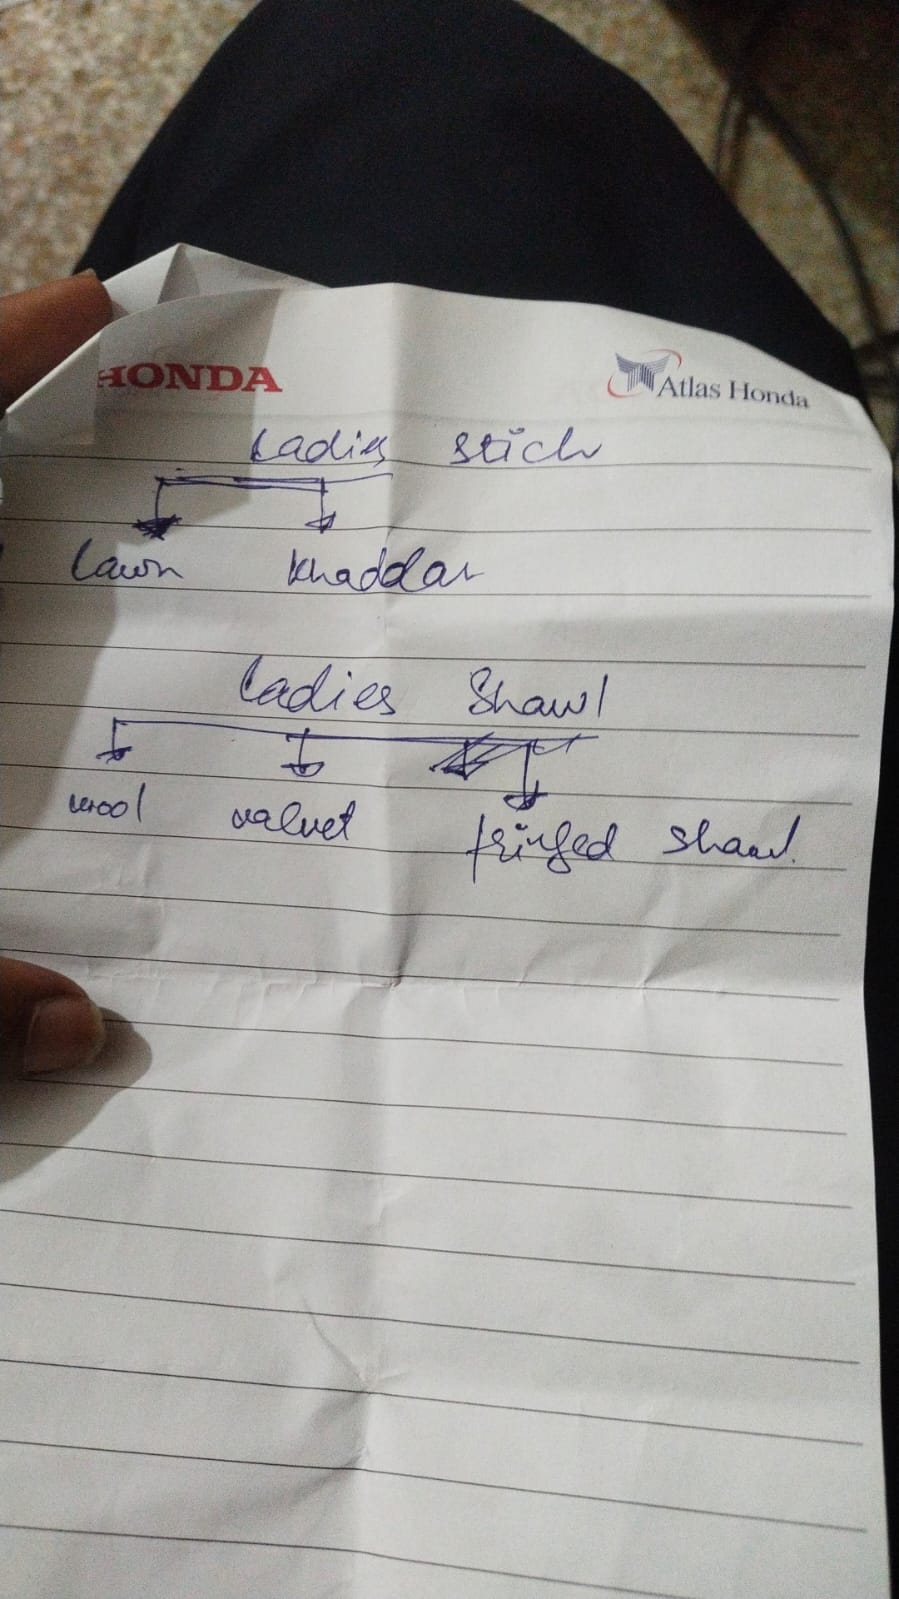 HONDA Atlas Honda
Ladies stich
Lawn khaddar
Ladies Shawl
wool valvet fringed shawl.